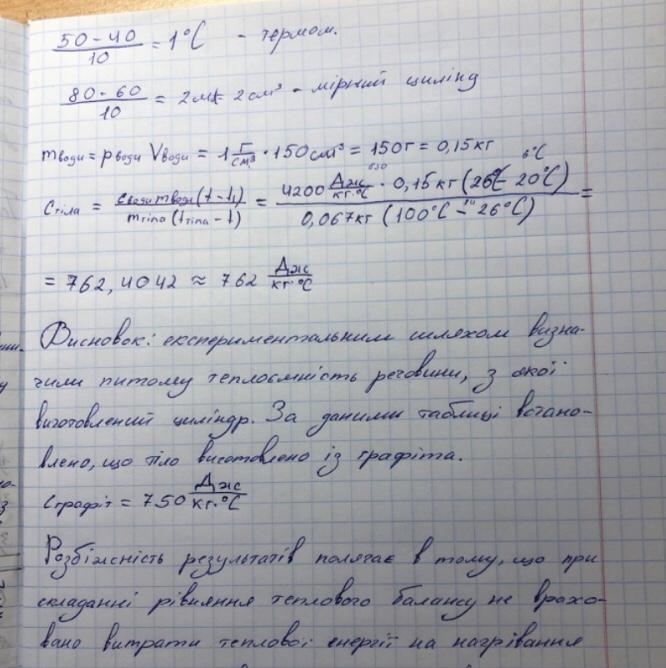 50 - 40 / 10 = 1°C - термом.
80 - 60 / 10 = 2 мл = 2 см³ - мірний цилінд
mводи = ρводи Vводи = 1 г/см³ · 150 см³ = 150 г = 0,15 кг
6°C
630
Cтіла = Cводи mводи (t - t₁) / mтіла (tтіла - t) = 4200 Дж/кг·°C · 0,15 кг (26°C - 20°C) / 0,067 кг (100°C - 26°C) =
= 762,4042 ≈ 762 Дж/кг·°C
Висновок: експериментальним шляхом визна-
чили питому теплоємність речовини, з якої
виготовлений циліндр. За даними таблиці встано-
влено, що тіло виготовлено із графіта.
Cграфіт = 750 Дж/кг·°C
Розбіжність результатів полягає в тому, що при
складанні рівняння теплового балансу не врахо-
вано витрати теплової енергії на нагрівання